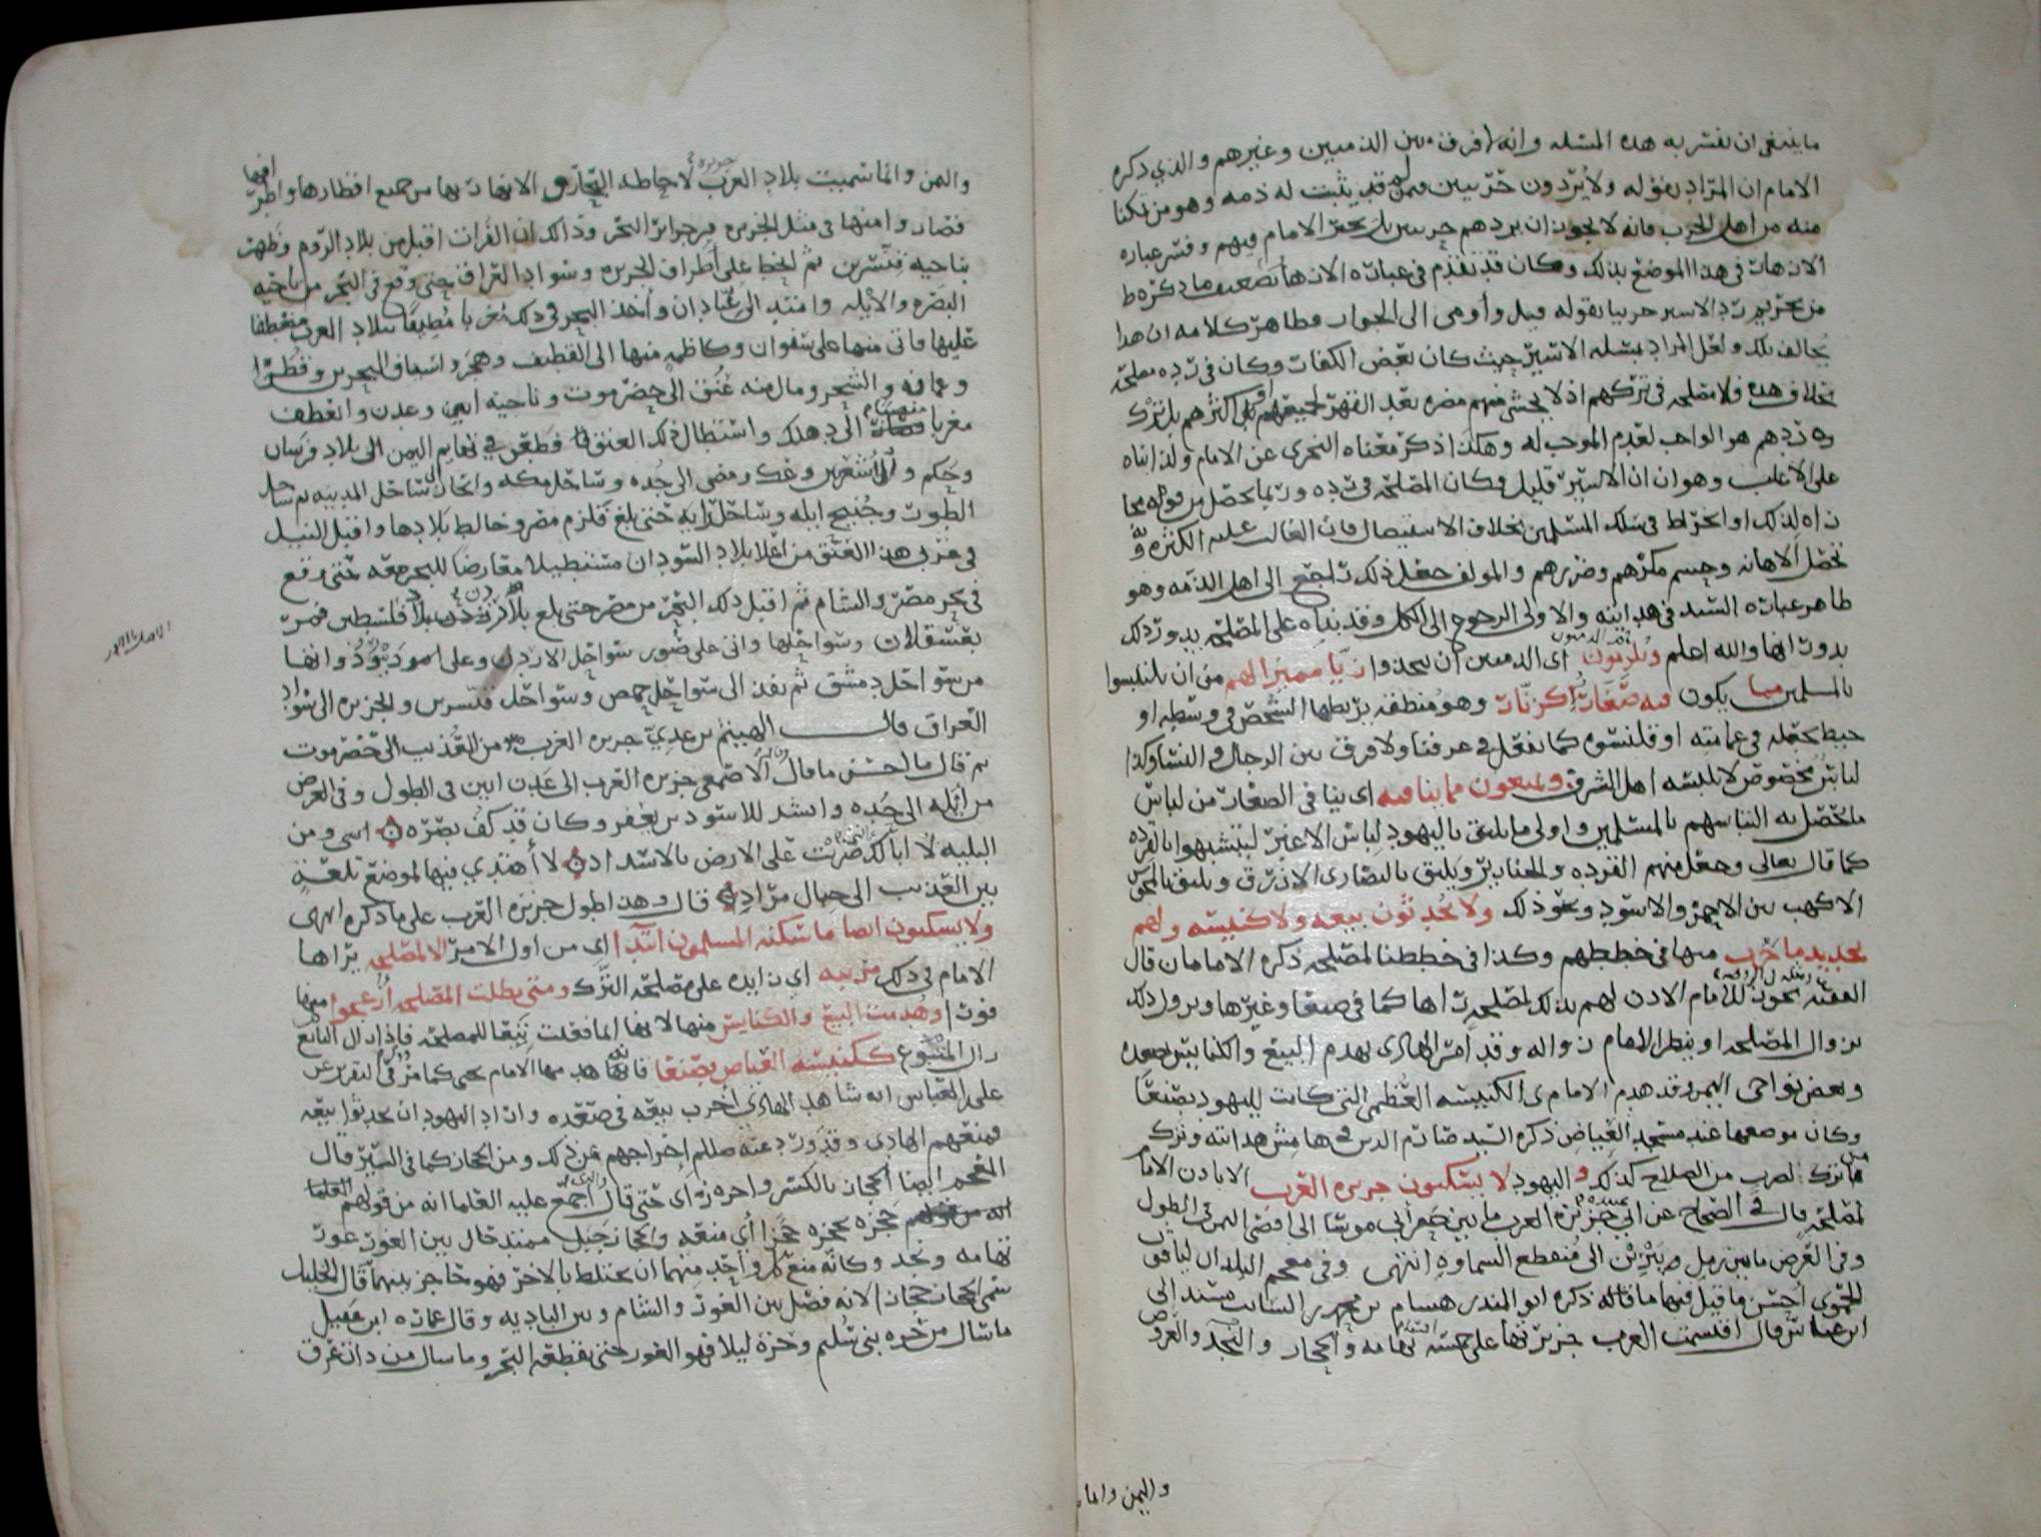 ما ينبغي ان نفسر به هذه المسئله وانه لا فرق بين الذميين وغيرهم والذي ذكره
الامام ان المراد بقوله ولا يردون حربيين فيمن قد يثبت له ذمه وهو من تمكنا
منه من اهل الحرب فانه لا يجوز ان يردهم حربيين بل يخير الامام فيهم وفسر عباره
الازهار في هذا الموضع بذلك وكان قد تقدم في عبارة الازهار تضعيف ما ذكره ط
من تحريم رد الاسير حربيا بقوله قيل وأومى الى الجواز فظاهر كلامه ان هذا
يخالف ذلك ولعل المراد بمسئله الاسير حيث كان بعض الكفار وكان في رده مصلحه
بخلاف هذه فلا مصلحه في تركهم اذ لا يخشى منهم مضره بعد القهر لجميعهم او اكثرهم بل ترك
ردهم هو الواجب لعدم الموجب له وهكذا ذكر معناه النجري عن الامام ولذا بناه
على الاغلب وهو ان الاسير قليل وكان المصلحه في رده وربما يحصل من قوله مجا
زاه لذلك او انخراط في سلك المسلمين بخلاف الاستيصال فان الغالب عليه الكثره و
تحصل الاهانه وحسم مكرهم وضررهم والمولف جعل ذلك راجع الى اهل الذمه وهو
ظاهر عبارة السيد في هدايته والاولى الرجوع الى الكل وقد بناه على المصلحه يدور ذلك
بدورانها والله اعلم ويلزمون اي الذميين ان يتخذوا زيا مميزا لهم من ان يلتبسوا
بالمسلمين مما يكون فيه صغار كزنار وهو منطقه يربطها الشخص في وسطه او
خيط يجعله في عمامته او قلنسوه كما يفعل في عرفنا ولا فرق بين الرجال والنساء وكذا
لباس مخصوص لا تلبسه اهل الشرف ويمنعون مما ينافيه اي ينافي الصغار من لباس
ما يحصل به التباسهم بالمسلمين واولى ما يليق باليهود لباس الاغبر ليتشبهوا بالقرده
كما قال تعالى وجعل منهم القرده والخنازير ويليق بالنصارى الازرق ويليق بالمجوس
الاكهب بين الاحمر والاسود ونحو ذلك ولا يحدثون بيعه ولا كنيسه ولهم
تجديد ما خرب منها في خططهم وكذا في خططنا لمصلحه ذكره الامامان قال
الفقيه يجوز للامام الاذن لهم بذلك لمصلحه رأها كما في صنعا وغيرها ويزول ذلك
بزوال المصلحه او ينظر الامام زواله وقد امر الهادي بهدم البيع والكنايس بصعده
وبعض نواحي اليمن وقد هدم الامام ي الكنيسه العظمى التي كانت لليهود بصنعا
وكان موضعها عند مسجد الفياض ذكره السيد صارم الدين في هامش هدايته وترك
ما ترك لضرب من الصلاح كذلك واليهود لا يسكنون جزيره العرب الا باذن الامام
لمصلحه قال في الصحاح عن ابي عبيده جزيرة العرب ما بين حفر ابي موسى الى اقصى اليمن في الطول
وفي العرض ما بين رمل يبرين الى منقطع السماوه انتهى وفي معجم البلدان لياقوت
الحموي احسن ما قيل فيها ما قاله ذكره ابو المنذر هشام بن محمد بن السائب مسند الى
ابن عباس قال اقتسمت العرب جزيرتها على خمسه اقسام تهامه والحجاز والنجد والعروض
واليمن وانما
واليمن وانما سميت بلاد العرب جزيره لاحاطه البحار والانهار بها من جميع اقطارها واطرافها
فصاروا منها في مثل الجزيره من جزائر البحر وذلك ان الفرات اقبل من بلاد الروم فظهر
بناحيه قنسرين ثم انحط على أطراف الجزيره وسواد العراق حتى وقع في البحر من ناحيه
البصره والابله وامتد الى عبادان وأخذ البحر في ذلك مغربا مطيفا ببلاد العرب منعطفا
عليها فاتى منها على سفوان وكاظمه منها الى القطيف وهجر واسياف البحرين وقطر
وعمان والشحر ومال منه عنق الى حضرموت وناحيه ابين وعدن وانعطف
مغربا الى دهلك واستطال ذلك العنق فطعن في تهايم اليمن الى بلاد فرسان
وحكم والاشعرين وعك ومضى الى جده وساحل مكه والجار ساحل المدينه ثم ساحل
الطور وخليج ايله وساحل رايه حتى بلغ قلزم مصر وخالط بلادها واقبل النيل
في غربي هذا العنق من اعلا بلاد السودان مستطيلا معارضا للبحر معه حتى دفع
في بحر مصر والشام ثم اقبل ذلك البحر من مصر حتى بلغ بلاد فلسطين فمر
بعسقلان وسواحلها واتى على صور سواحل الاردن وعلى بيروت وانفا
من سواحل دمشق ثم نفذ الى سواحل حمص وسواحل قنسرين والجزيره الى سواد
العراق قال الهيثم بن عدي جزيره العرب من العذيب الى حضرموت
ثم قال ما احسن ما قال الاصمعي جزيره العرب الى عدن ابين في الطول وفي العرض
من ابله الى جده وانشد للاسود بن يعفر وكان قد كف بصره ومن
البليه لا ابالك ضربت على الارض بالاسداد لا أهتدي فيها لموضع تلعه
بين العذيب الى جبال مراد قال وهذا طول جزيره العرب على ما ذكره انتهى
ولا يسكنون ايضا ما سكنه المسلمون ابتداً اي من اول الامر الا لمصلحه يراها
الامام في ذلك مرجحه اي زايده على مصلحه الترك ومتى بطلت المصلحه ازعجوا منها
فورا وهدمت البيع والكنايس منها لانها انما فعلت تبعا للمصلحه فاذا زال التابع
زال المتبوع ككنيسه الفياض بصنعا فانها هدمها الامام يحيى كما مر في التقرير عن
علي بن العباس انه شاهد الهادي اخرب بيعه في صعده واراد اليهود ان يحدثوا بيعه
فمنعهم الهادي وقد ورد عنه صللم اخراجهم عن ذلك ومن الحجاز كما في السير قال
المعجم ايضا الحجاز بالكسر واخره زاي حتى قال والذي اجمع عليه العلما انه من قولهم
حجزه يحجزه حجزا أي منعه والحجاز جبل ممتد حال بين الغور غور
تهامه ونجد وكانه منع كل واحد منهما ان يختلط بالاخر فهو حاجز بينهما قال الخليل
سمي الحجاز حجازا لانه فصل بين الغور والشام وبين الباديه وقال عماره ابن عقيل
ما سال من حره بني سليم وحرة ليلا فهو الغور حتى يقطعه البحر وما سال من ذات عرق